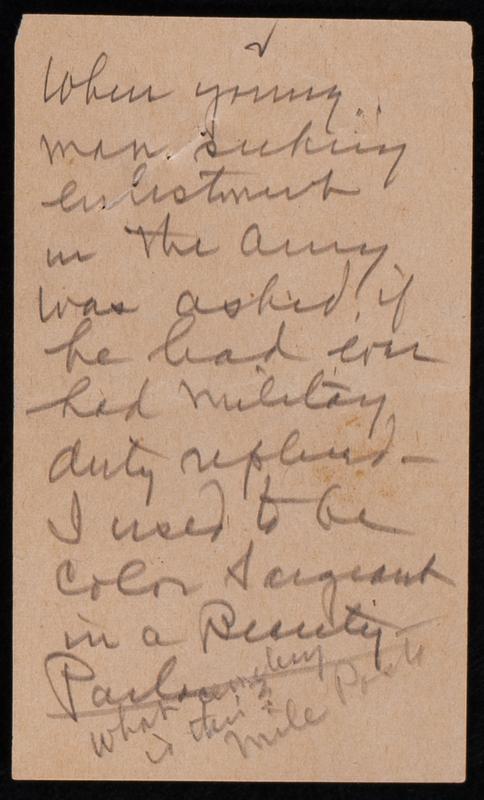 When young
man seeking
enlistment
in the army
was asked if
he had ever
had military
duty replied -
I used to be
Color Sargeant
in a Beauty
Parlor
What
is this?
Mile Posts